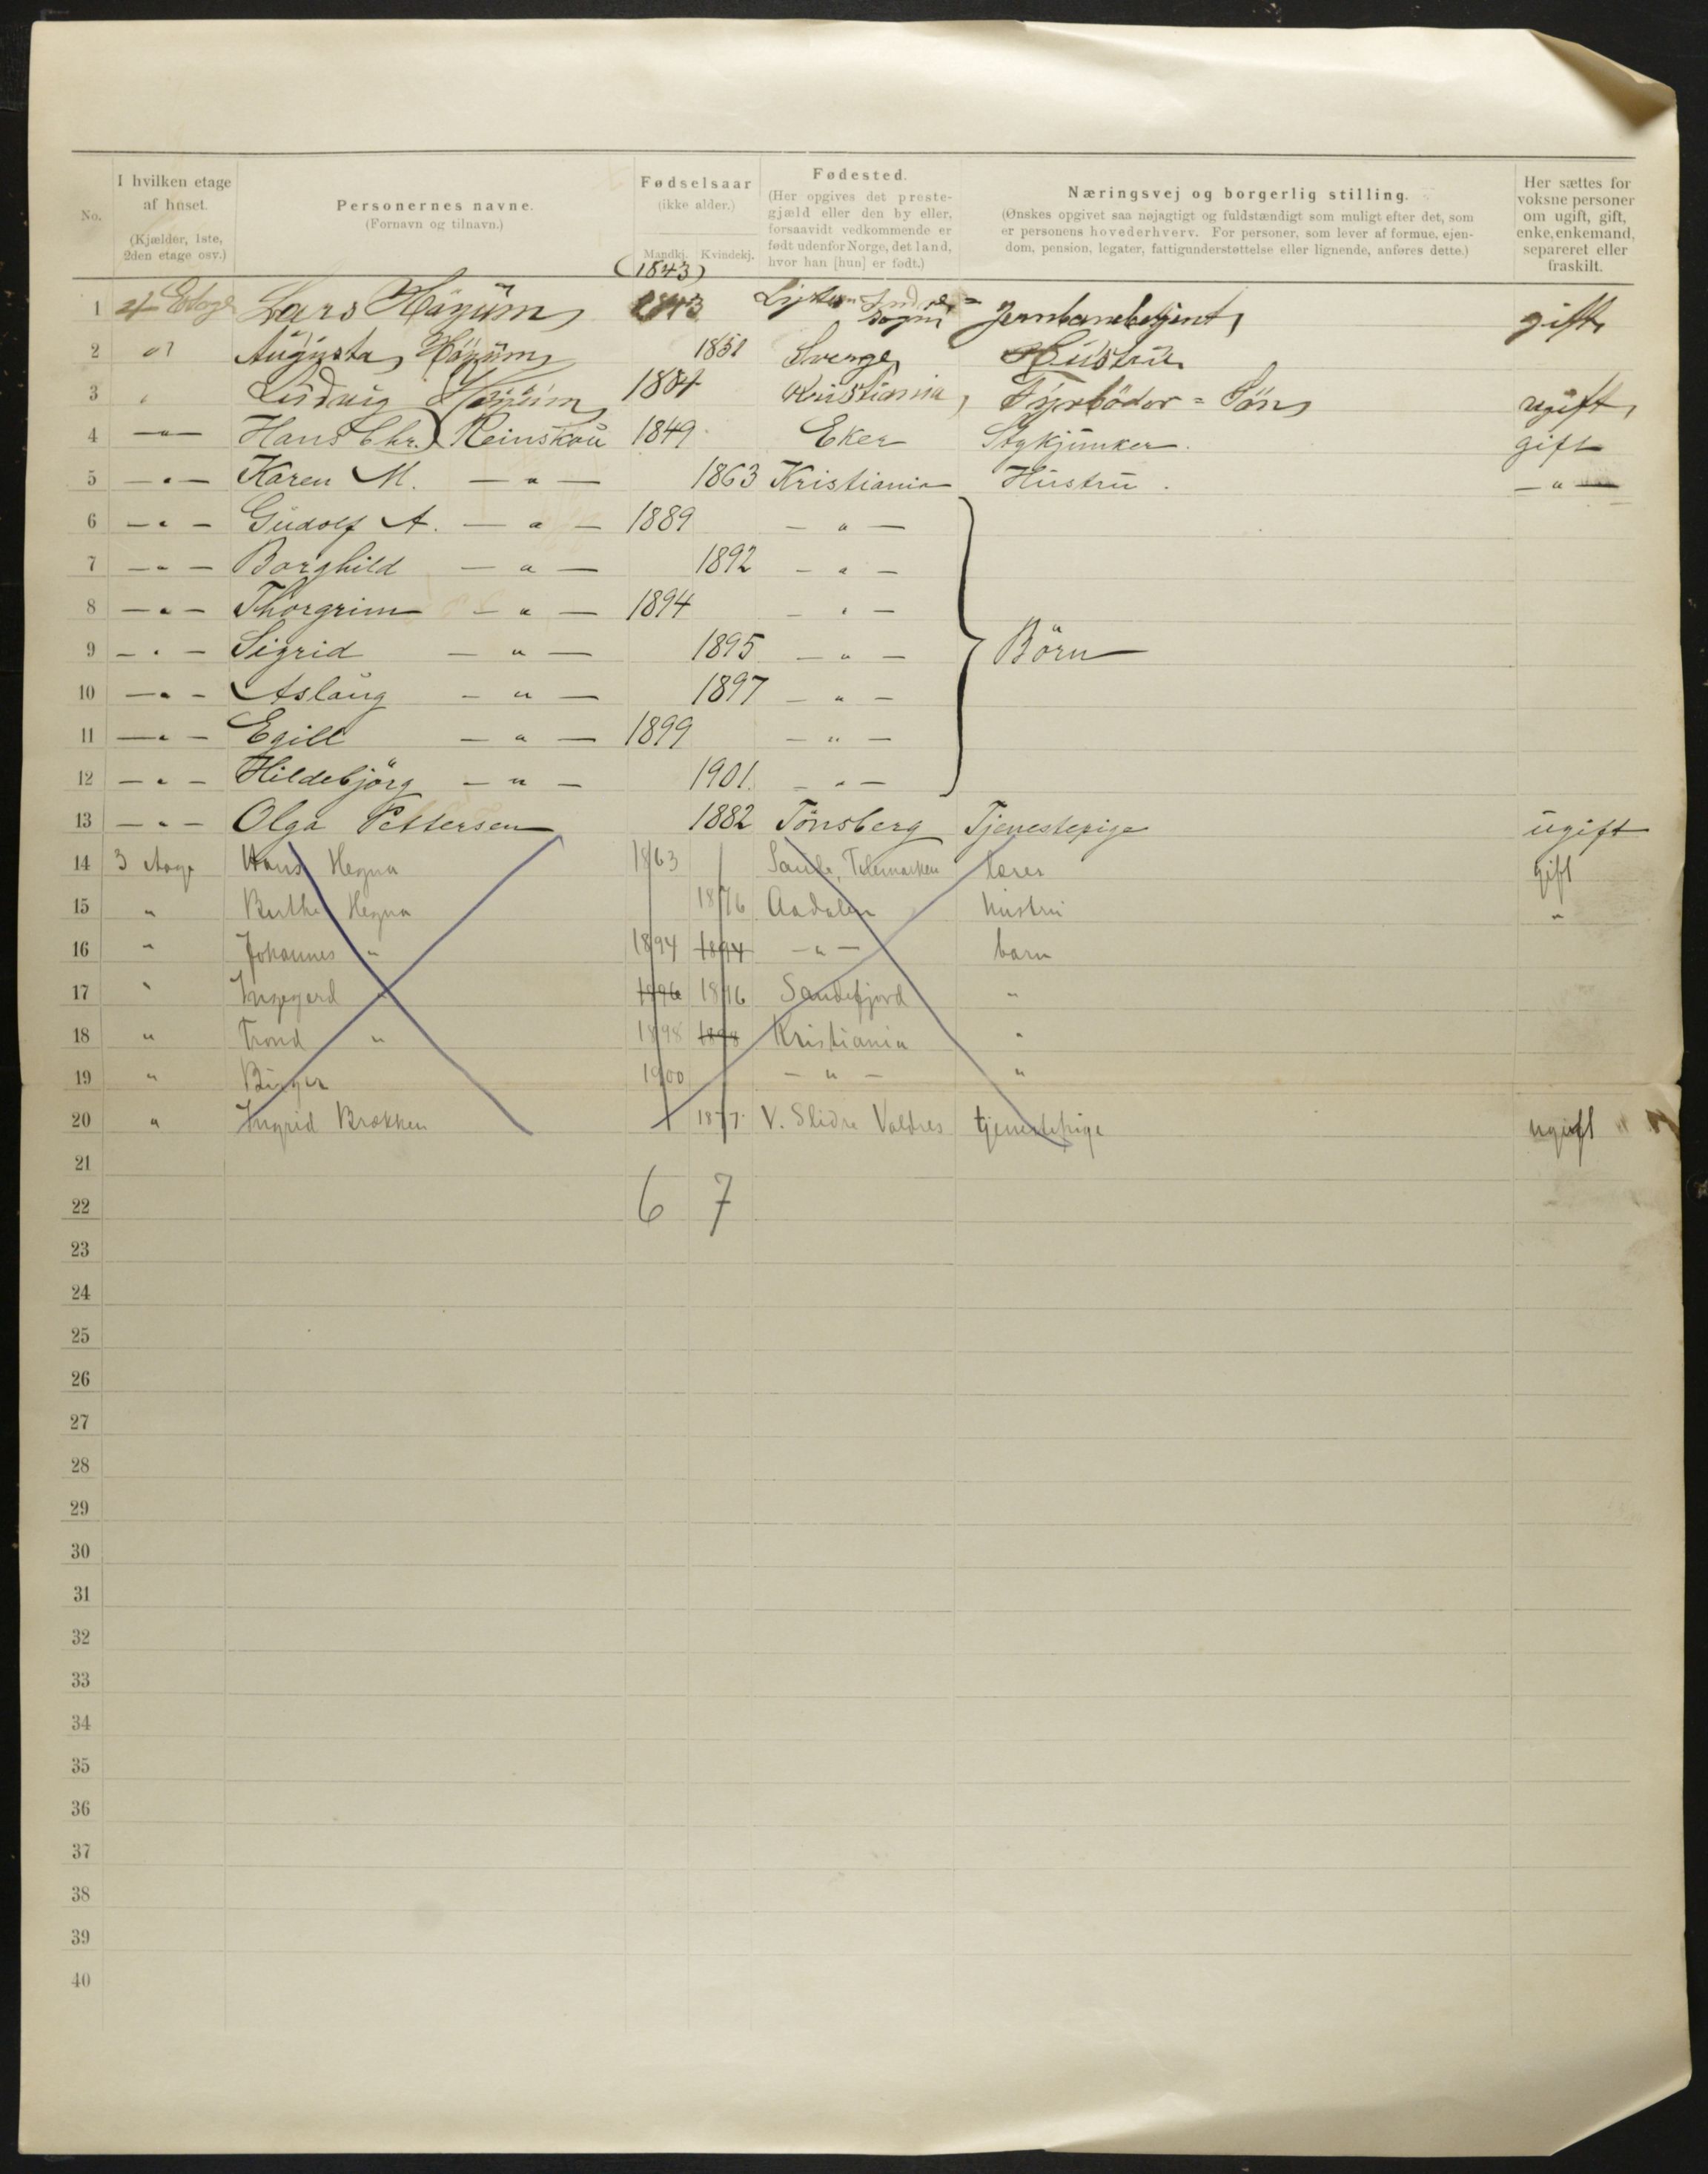 No.
I hvilken etage af huset.
(Kjælder, 1ste, 2den etage osv.)
Personernes navne.
(Fornavn og tilnavn.)
Fødselsaar
(ikke alder.)
Mandkj. Kvindekj.
Fødested.
(Her opgives det preste-
gjæld eller den by eller,
forsaavidt vedkommende er
født udenfor Norge, det land,
hvor han [hun] er født.)
Næringsvej og borgerlig stilling.
(Ønskes opgivet saa nøjagtigt og fuldstændigt som muligt efter det, som
er personens hovederhverv. For personer, som lever af formue, ejen-
dom, pension, legater, fattigunderstøttelse eller lignende, anføres dette.)
Her sættes for
voksne personer
om ugift, gift,
enke, enkemand,
separeret eller
fraskilt.
(1843)
1 4 Etage Lars 1843 Jernbanebetjent, gift,
2 " Augusta 1851 Sverge Hustru
3 " Ludvig 1884 Kristiania, Fyrbödor = Sön, ugift,
4 — " — Hans Chr. Reinskou 1849 Eker Stykjunker. gift
5 — " — Karen M. — " — 1863 Kristiania Hustru. — " —
6 — " — Gudolf A. — " — 1889 — " —
7 — " — Borghild — " — 1892 — " —
8 — " — Thorgrim — " — 1894 — " —
9 — " — Sigrid — " — 1895 — " — Börn
10 — " — Aslaug — " — 1897 — " —
11 — " — Egill — " — 1899 — " —
12 — " — Hildebjörg — " — 1901. — " —
13 — " — Olga Pettersen 1882 Tönsberg Tjenestepige ugift
14 3 etage Hans Hegna 1863 Saude, Telemarken lærer gift
15 " Berthe Hegna 1876 Aadalen hustru "
16 " Johannes " 1894 1894 — " — barn
17 " Ingegerd " 1896 1896 Sandefjord "
18 " Trond " 1898 1898 Kristiania "
19 " Birger 1900 — " — "
20 " Ingrid Brækken 1877. V. Slidre Valdres tjenestepige ugift
21
22 6 7
23
24
25
26
27
28
29
30
31
32
33
34
35
36
37
38
39
40